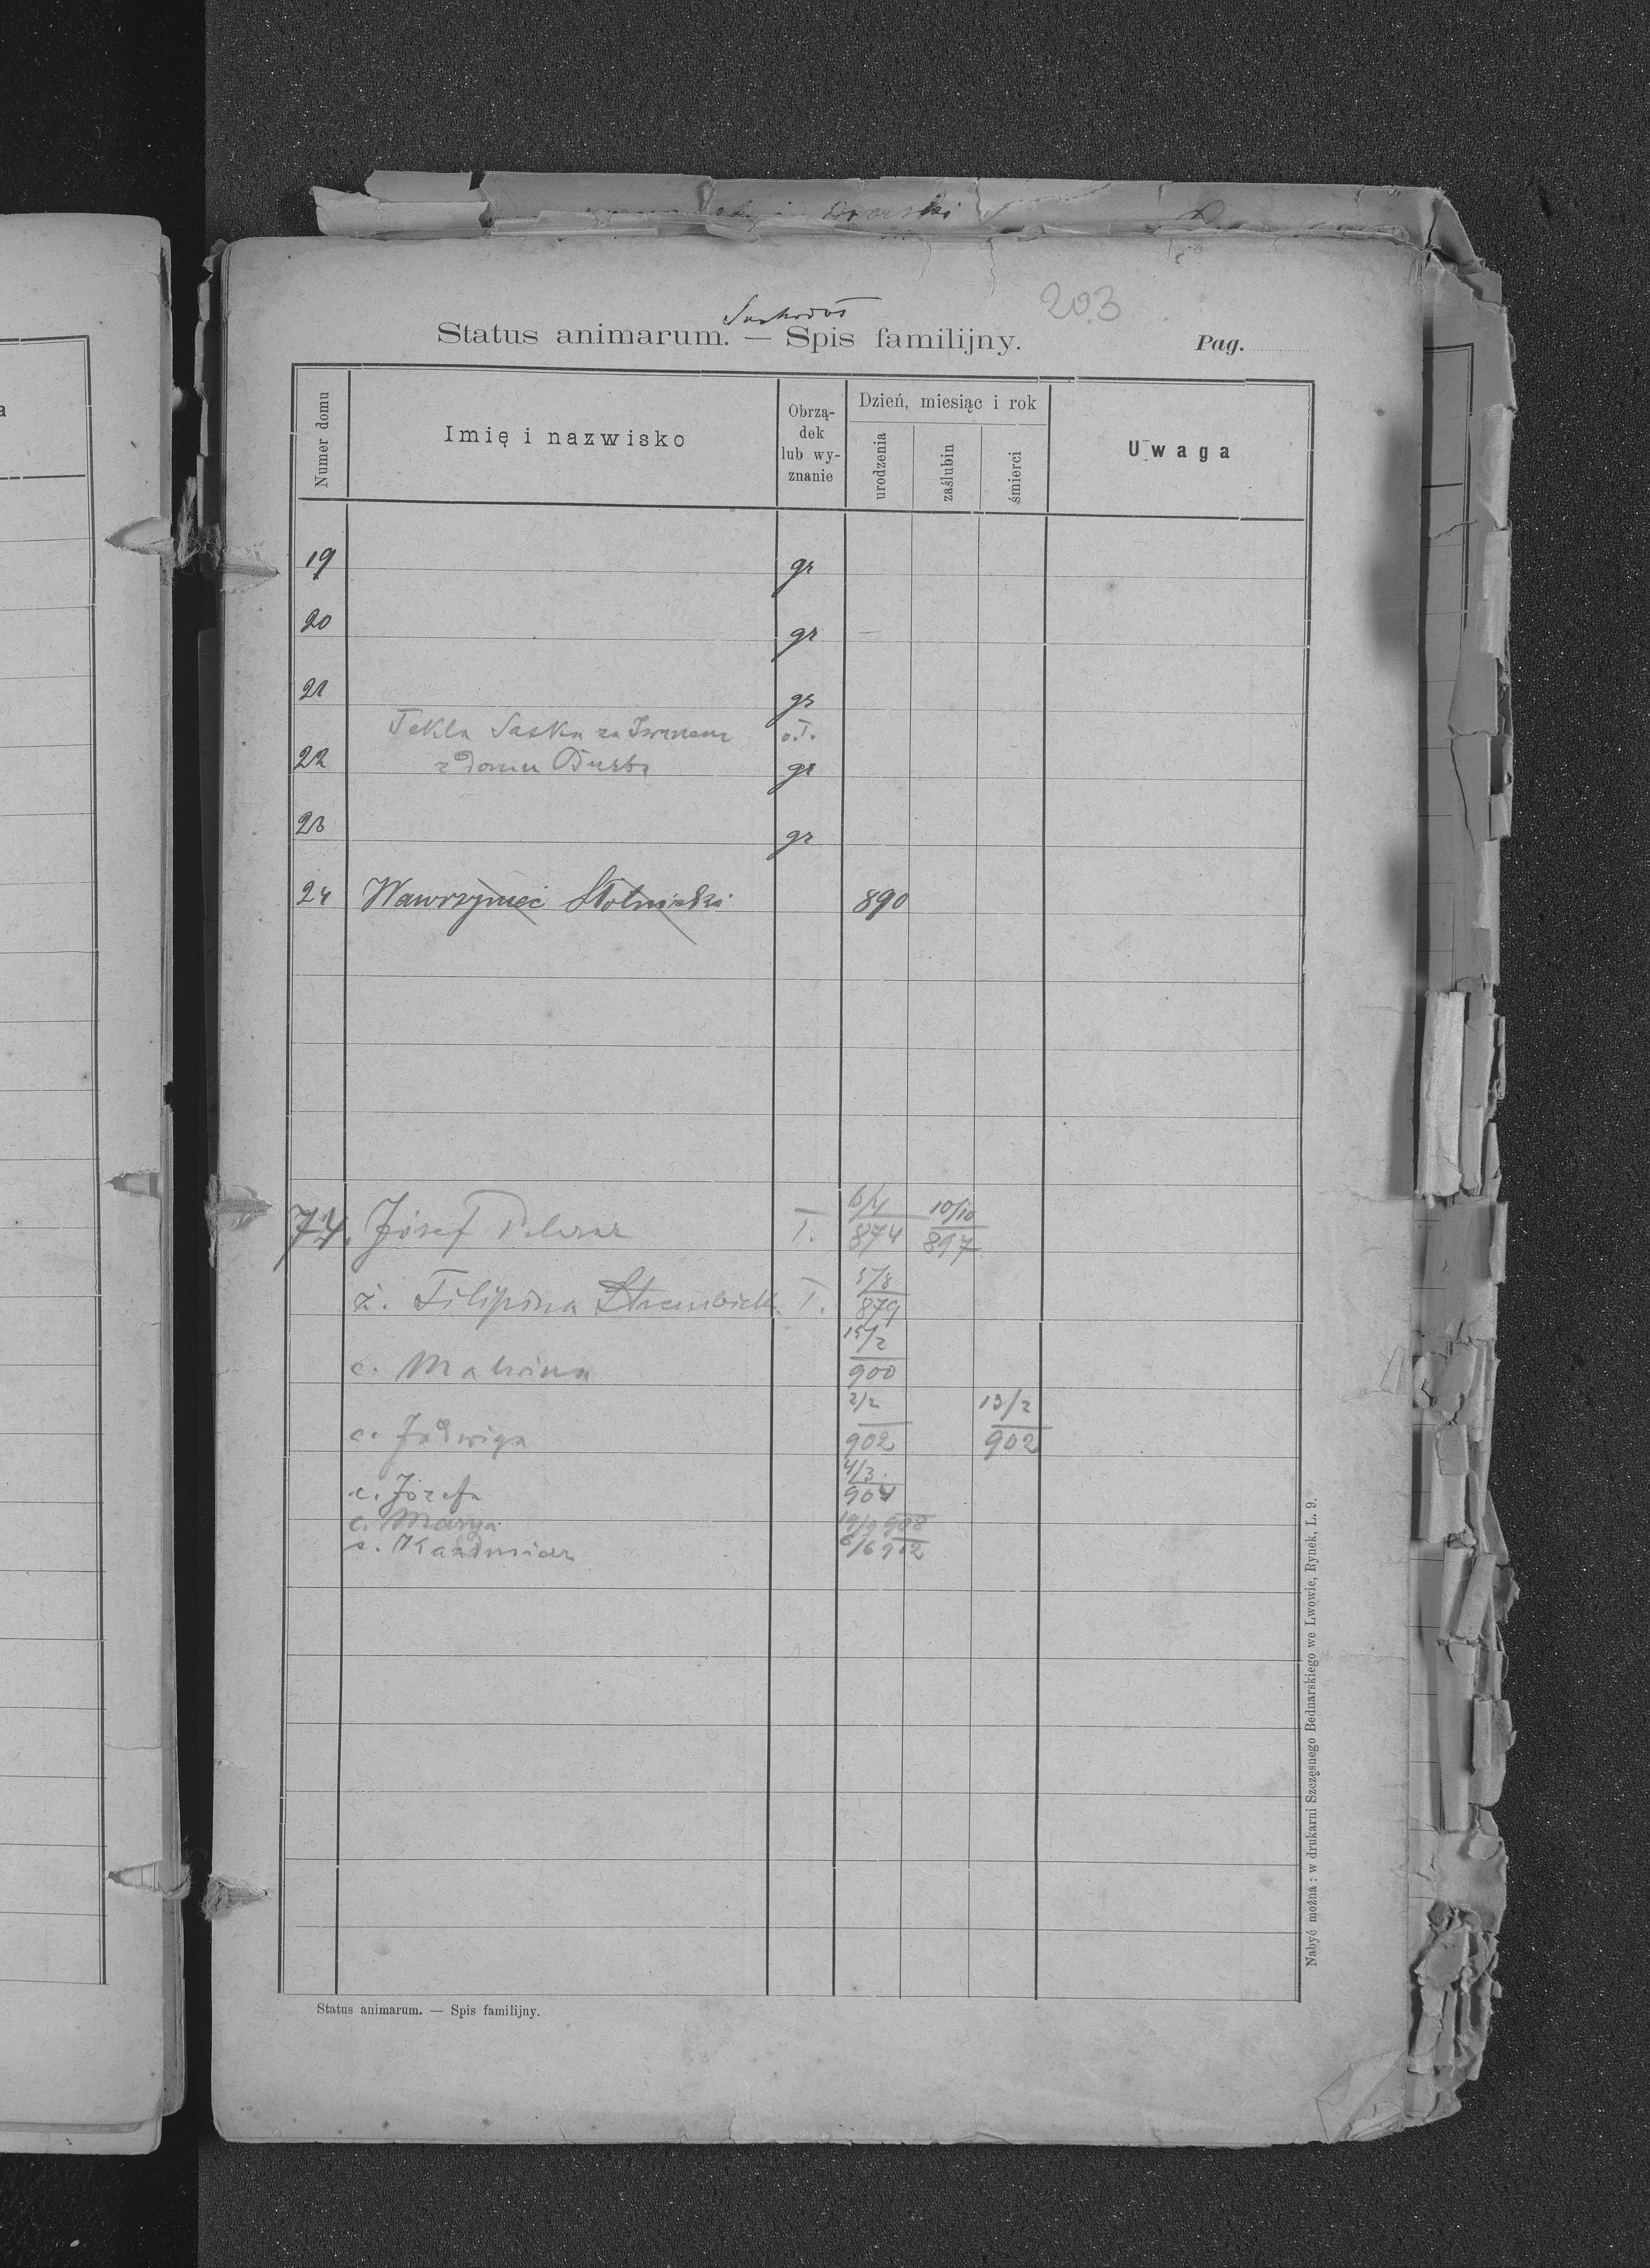 203
Suchodół
Status animarum. — Spis familijny.
Pag.
Numer domu
Imię i nazwisko
Obrzą-
dek
lub wy-
znanie
Dzień, miesiąc i rok
urodzenia
zaślubin
śmierci
Uwaga
19 gr
20 gr
21 gr
Tekla Saska za Iwanem o.ł.
22 z domu gr
23 gr
24 Wawrzyniec 890
74. Józef ł. 6/4 874 10/10 897
ż. Filipina ł. 5/8 879
c. Malwina 15/2 900
c. Jadwiga 2/2 902 13/2 902
c. Józefa 4/3 904
c. Marya 908
s. Kazimierz 6/6 912
Status animarum. — Spis familijny.
Nabyć można: w drukarni Szczęsnego Bednarskiego we Lwowie, Rynek, L. 9.